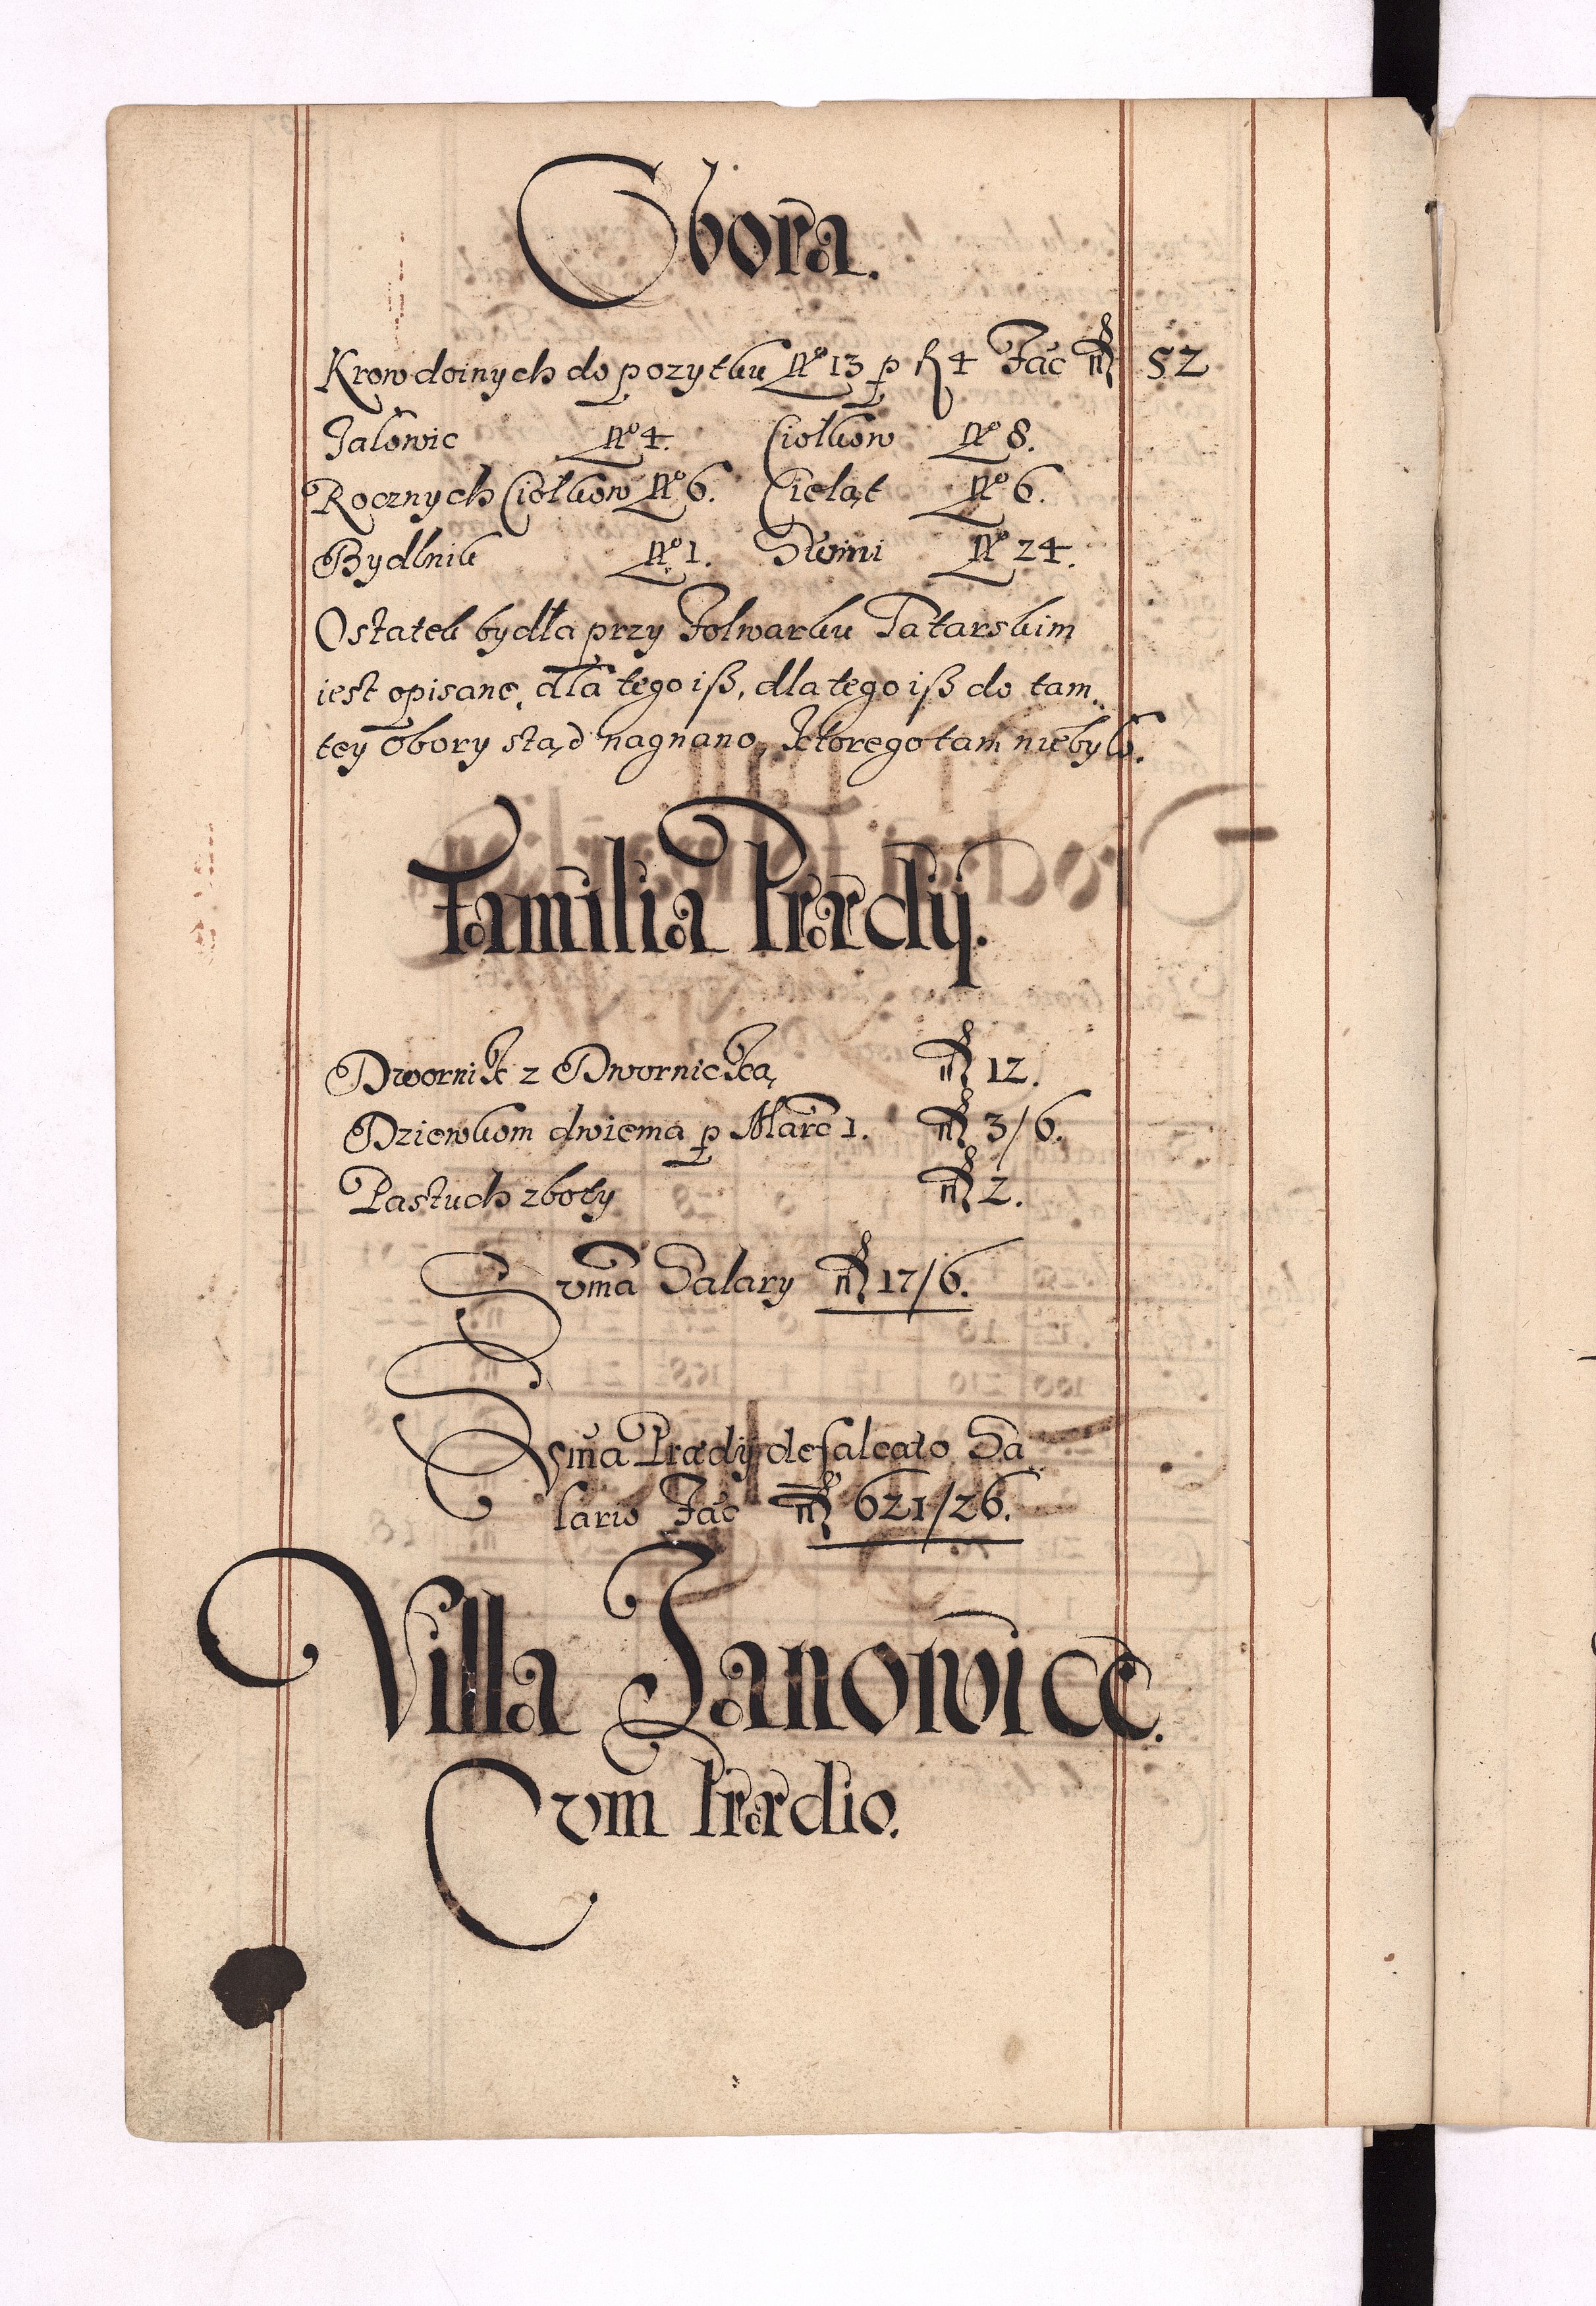 Obora.
Krow doinych do pozytku No 13 p fl 4 Fac fl 52
Jalowic No 4. Ciołkow No 8.
Rocznych Ciołkow No 6. Cieląt No 6.
Bydlnik No 1. Swini No 24.
Ostatek bydła przy Folwarku Tatarskim
iest opisane, dla tego iß, dla tego iß do tam
tey obory stąd nagnano, ktorego tam niebyło.
Familia Prædij.
Dwornik z Dwornicką fl 12.
Dziewkom dwiema p Marc 1. fl 3/6.
Pastuch zboły fl 2.
Suma Salary fl 17/6.
Suma Prædij defalcato Sa
lario Fac fl 621/26.
Villa Janowice.
Cum Prædio.